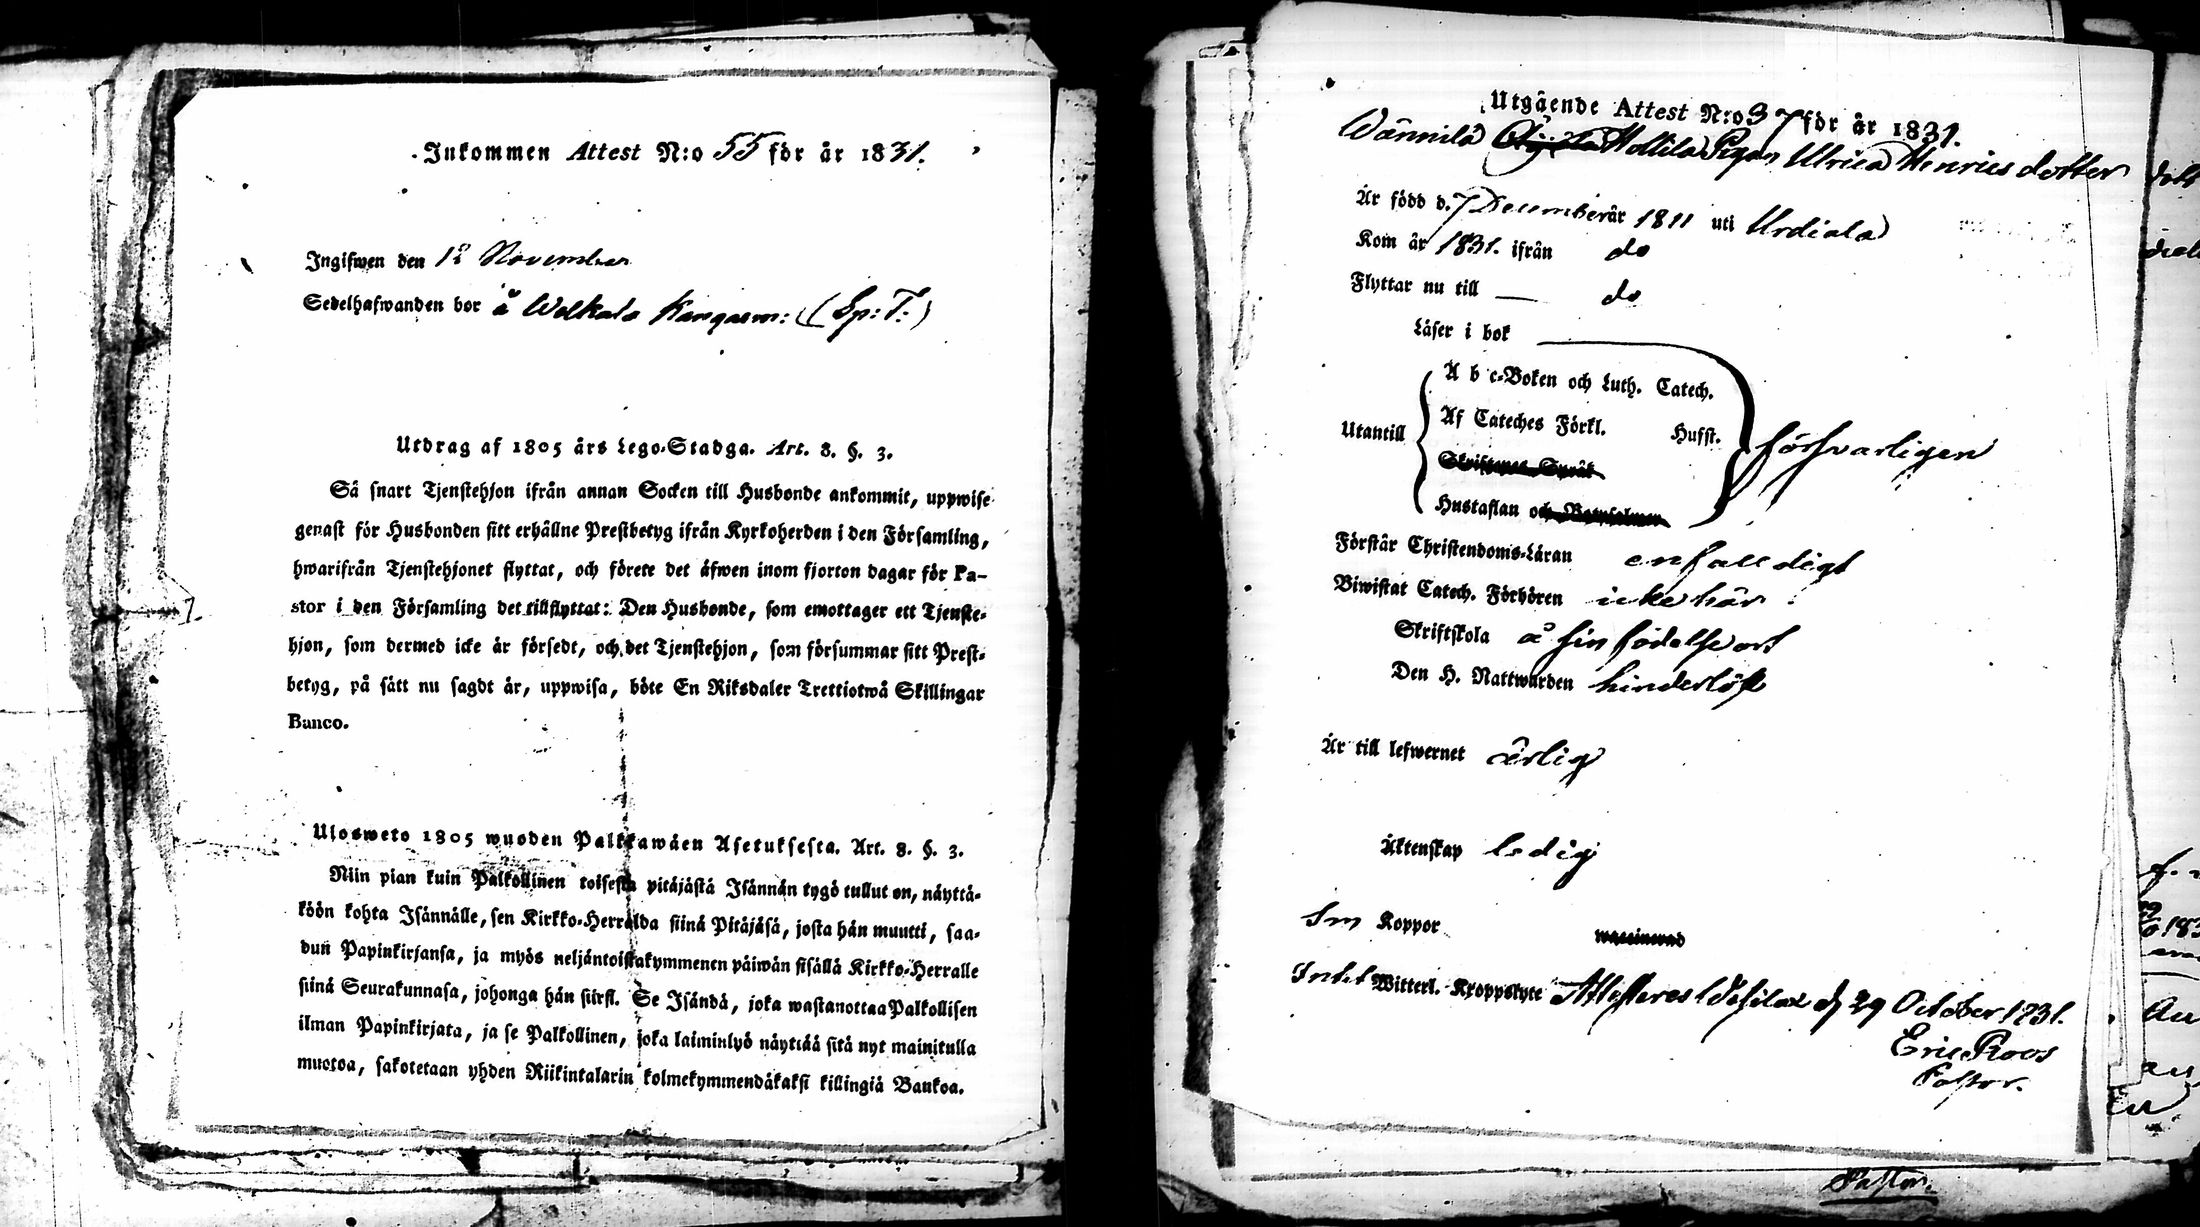 Inkommen Attest N:o 55 för år 1831.
Ingifwen den 12 November
Sedelhafwanden bor å Welkala Kangasm: (Sp: T:)
Utdrag af 1805 års Lego-Stadga. Art. 8. §. 3.
Så snart Tjenstehjon ifrån annan Socken till Husbonde ankommit, uppwise
genast för Husbonden sitt erhållne Prestbetyg ifrån Kyrkoherden i den Församling,
hwarifrån Tjenstehjonet flyttat, och förete det äfwen inom fjorton dagar för Pa-
stor i den Församling det tillflyttat: Den Husbonde, som emottager ett Tjenste-
hjon, som dermed icke är försedt, och det Tjenstehjon, som försummar sitt Prest-
betyg, på sätt nu sagdt är, uppwisa, böte En Riksdaler Trettiotwå Skillingar
Banco.
Ulosweto 1805 wuoden Palkkawäen Asetuksesta. Art. 8. §. 3.
Niin pian kuin Palkollinen toisesta pitäjästä Isännän tygö tullut on, näyttä-
köön kohta Isännälle, sen Kirkko-Herralda siinä Pitäjäsä, josta hän muutti, saa-
dun Papinkirjansa, ja myös neljäntoistakymmenen päiwän sisällä Kirkko-Herralle
siinä Seurakunnasa, johonga hän siirsi. Se Isändä, joka wastanottaa Palkollisen
ilman Papinkirjata, ja se Palkollinen, joka laiminlyö näyttää sitä nyt mainitulla
muotoa, sakotetaan yhden Riikintalarin kolmekymmendäkaksi killingiä Bankoa.
Utgående Attest N:o 37 för år 1831.
Wännilä Hollila Pigan Ulrica Henricsdotter
Är född d. 7 December år 1811 uti Urdiala
Kom år 1831. ifrån do
Flyttar nu till — do
Läser i bok
A b c-Boken och Luth. Catech.
Utantill Af Cateches Förkl. Husst. försvarligen
Skriftenes Språk
Hustaflan och Botpsalmer
Förstår Christendoms-Läran enfalldigt
Biwistat Catech. Förhören icke här
Skriftskola å sin födelse ort
Den H. Nattwarden hinderlöst
Är till lefwernet ärlig
Äktenskap ledig
Sm Koppor waccinerad
Intet Witterl. Kroppslyte Attesteres Wesilax d 29 October 1831.
Eric Roos
Pastor.
Pastor.